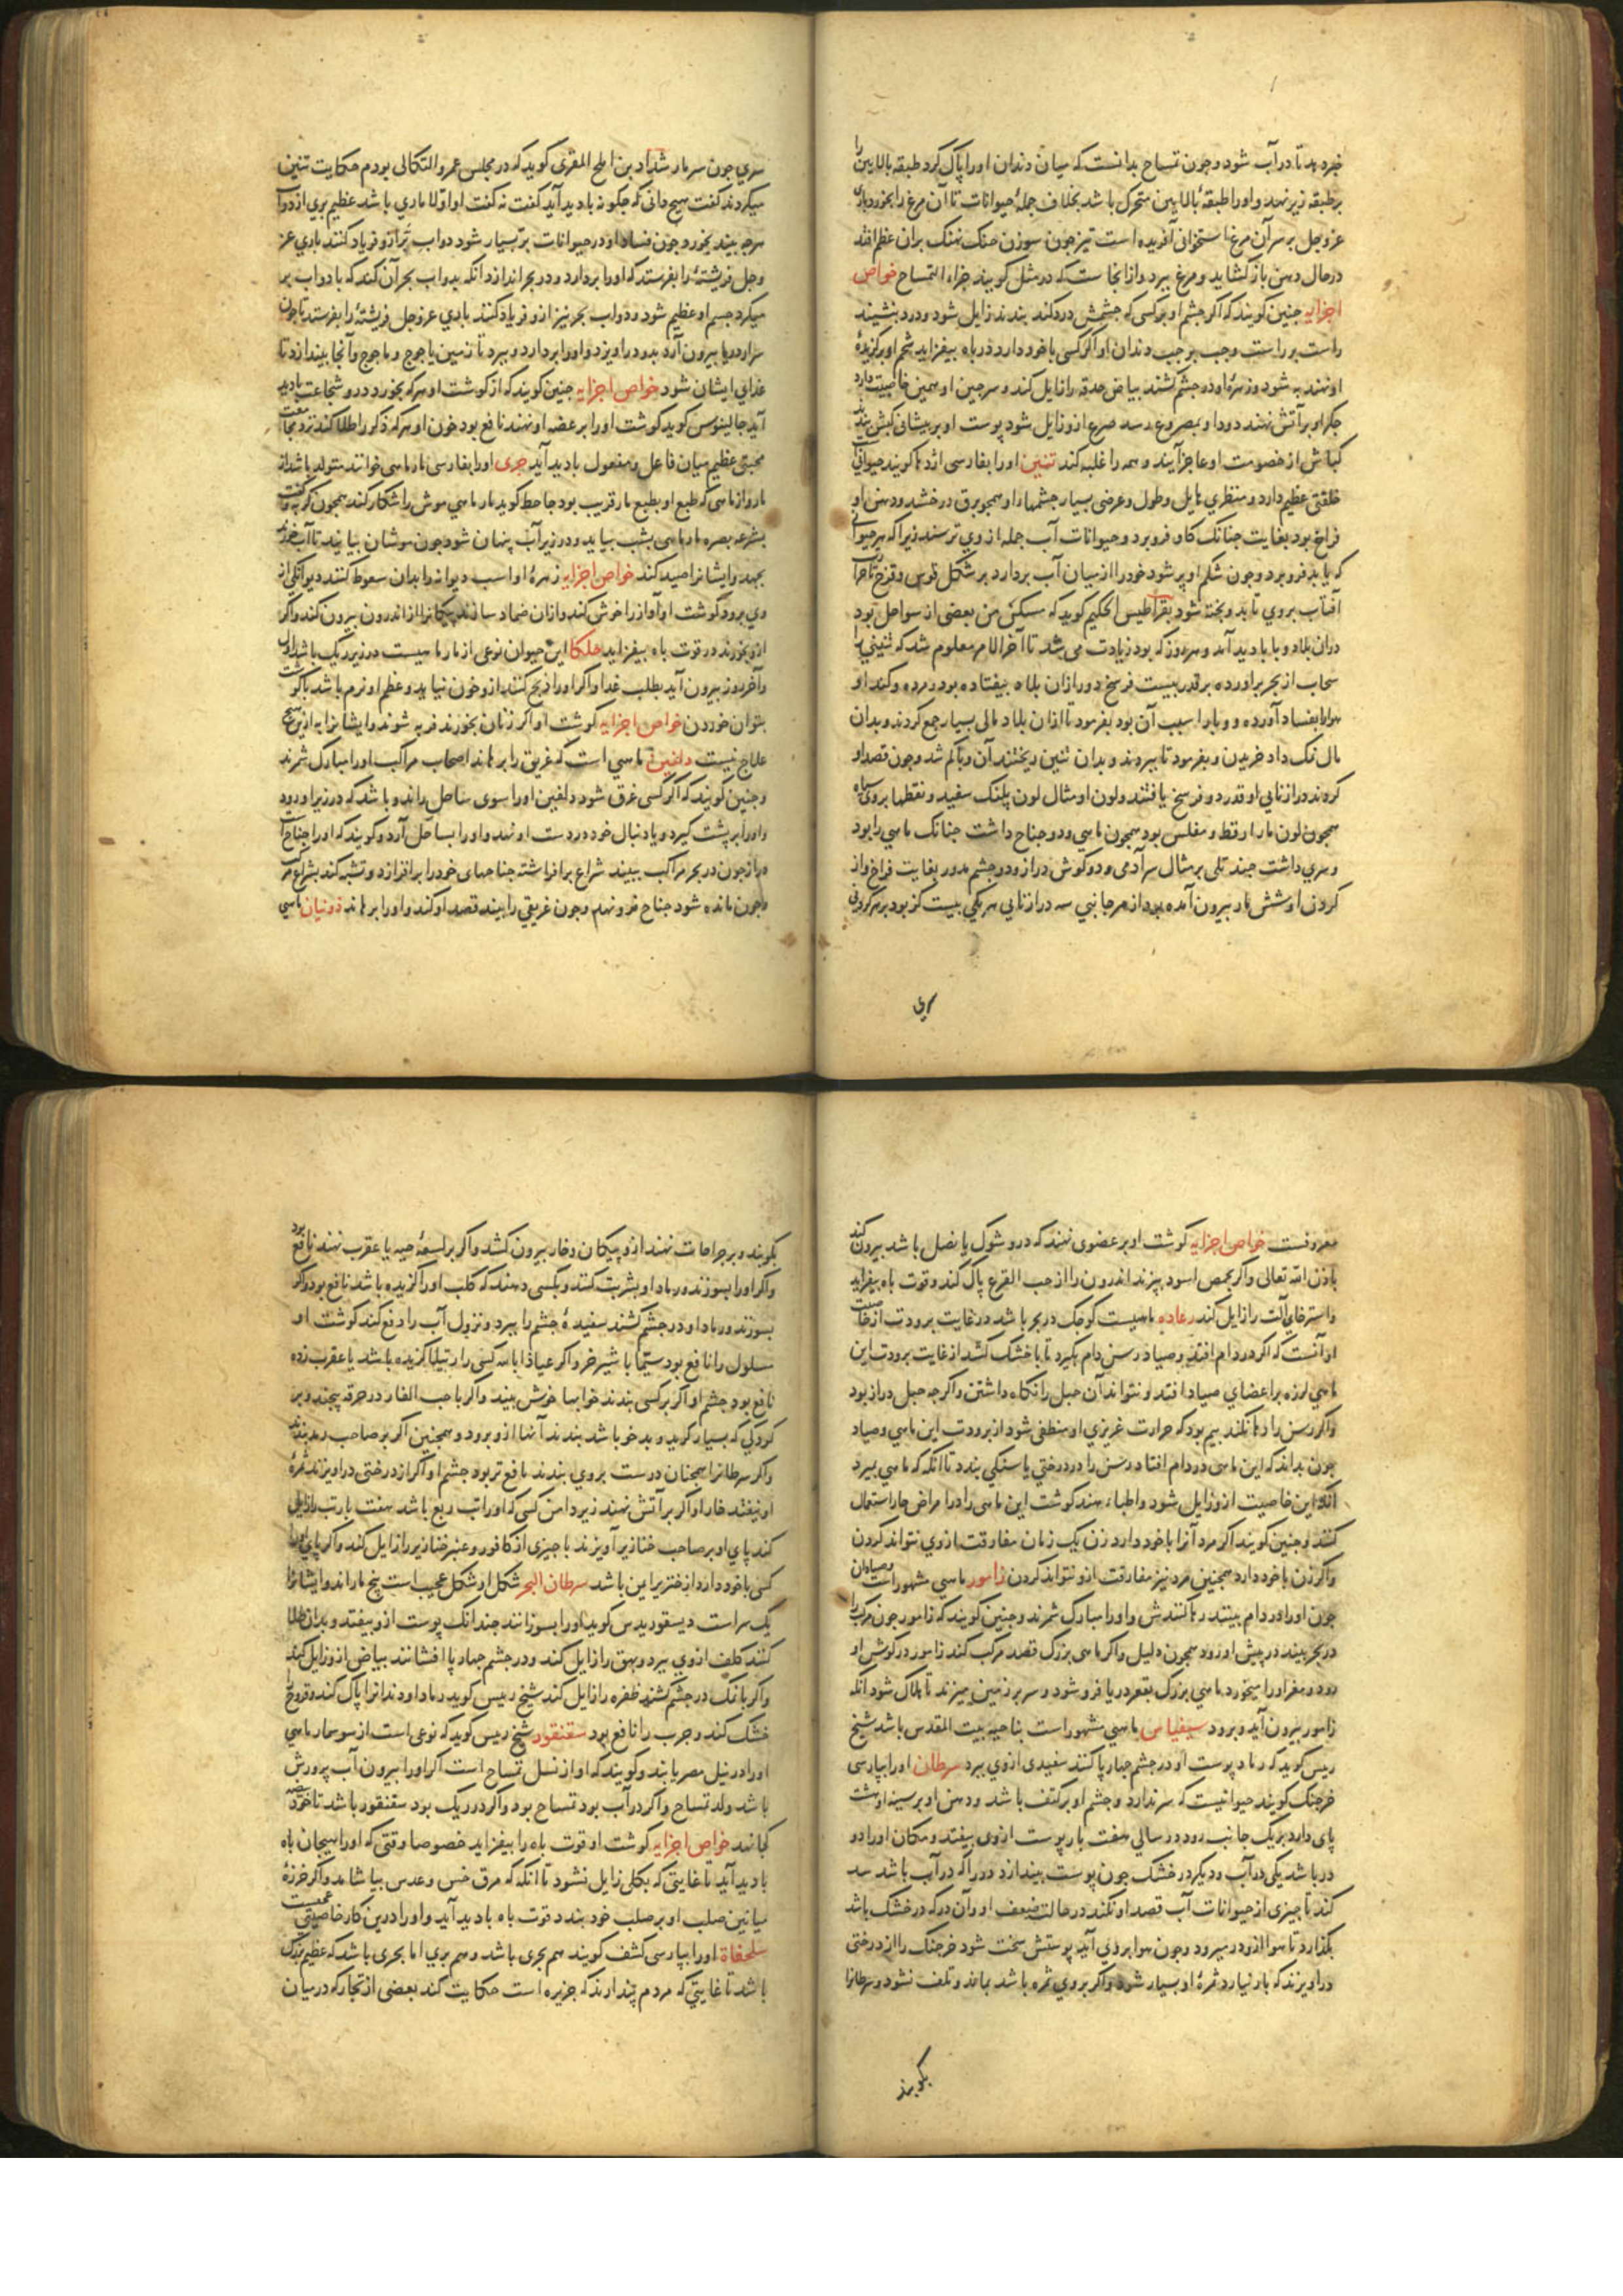 خبر دهد تا در آب شود و چون تمساح بدانست که میان دندان او را پاک کرد طبقه بالایین را
بر طبقه زیر نهد و او را طبقهٔ بالایین متحرک باشد بخلاف جملهٔ حیوانات تا آن مرغ را بخورد باری
عز و جل بر سر آن مرغ استخوانی آفریده است تیز چون سوزن حنک نهنک بران عظم افتد
در حال دهن باز کشاید و مرغ بپرد و از انجاست که در مثل کویند جزاء التمساح خواص
اجزایه جنین کویند که اکر چشم او بر کسی که چشمش درد کند بندند زایل شود و درد بنشیند
راست بر راست و چپ بر چپ دندان او اکر کسی با خود دارد در باه بیفزاید شحم او بر کزیدهٔ
او نهند به شود و زهرهٔ او در چشم کشند بیاض حدقه را زایل کند و سرجین او همین خاصیت دارد
جکر او بر آتش نهند دود او بمصروع رسد صرع ازو زایل شود پوست او بر پیشانی کبش بندند
کباش از خصومت او عاجز آیند و همه را غلبه کند تنین او را بفارسی اژدها کویند حیوانی
خلقتی عظیم دارد و منظری هایل و طول و عرضی بسیار چشمها دارد همچو برق درخشد و دهن او
فراخ بود بغایت جنانک کاو فرو برد و حیوانات آب جمله از وی ترسند زیرا که هر حیوانی
که یابد فرو برد و چون شکم او پر شود خود را از میان آب بردارد بر شکل قوس و قزح تا حرارت
آفتاب بر وی تابد و پخته شود بقراطیس الحکیم کوید که مسکن من بعضی از سواحل بود
دران بلاد وبا بادید آمد و هر روز که بود زیادت می شد تا آخر الامر معلوم شد که تنینی را
سحاب از بحر براورده بر قدر بیست فرسخ دور ازان بلاد بیفتاده بود و مرده و کند او
هوا را بفساد آورده و وبا را سبب آن بود بفرمود تا ازان بلاد مالی بسیار جمع کردند و بدان
مال نمک داد خریدن و بفرمود تا ببردند و بدان تنین ریختند آن وبا کم شد و چون قصد او
کردند درازنایی او قدر دو فرسخ یافتند و لون او مثال لون پلنک سفید و نقطها بروی سیاه
همچون لون مار ارقط و مفلس بود همچون ماهی و دو جناح داشت جنانک ماهی را بود
و سری داشت چند تلی بر مثال سر آدمی و دو کوش دراز و دو چشم مدور بغایت فراخ و از
کردن او شش مار بیرون آمده بود از هر جانبی سه درازنایی هر یکی بیست کز بود بر هر کردنی
سری چون سر مار شداد بن افلح المقری کوید که در مجلس عمرو البکالی بودم حکایت تنین
میکردند کفت هیچ دانی که چکونه بادید آید کفت نه کفت او اولا ماری باشد عظیم بری از دواب
هر چه بیند بخورد و چون فساد او در حیوانات بر بسیار شود دواب بر ازو فریاد کنند باری عز
و جل فرشتهٔ را بفرستد که او را بردارد و در بحر اندازد آنکه بدواب بحر آن کند که با دواب بر
میکرد جسم او عظیم شود و دواب بحر نیز ازو فریاد کنند باری عز و جل فریشتهٔ را بفرستد تا چون
سر از دریا بیرون آرد بدو دراویزد و او را بردارد و ببرد تا زمین یاجوج و ماجوج و آنجا بیندازد تا
غذای ایشان شود خواص اجزایه جنین کویند که از کوشت او هر که بخورد درو شجاعت بادید
آید جالینوس کوید کوشت او را بر عضه او نهند نافع بود خون او هر که ذکر را طلا کند نزد مجامعت
محبتی عظیم میان فاعل و مفعول بادید آید جری او را بفارسی مارماهی خوانند متولد باشد از
مار و از ماهی که طبع او بطبع مار قریب بود جاحظ کوید مارماهی موش را شکار کند همچون کربه و کفت
بشرعه بصره مارماهی بشب بیاید و در زیر آب پنهان شود چون موشان بیایند تا آب خورند
بجهد و ایشانرا صید کند خواص اجزایه زهرهٔ او اسب دیوانه را بدان سعوط کنند دیوانکی از
وی برود کوشت او آواز را خوش کند و ازان ضماد سازند پیکانرا از اندرون بیرون کند و اکر
ازو بخورند در قوت باه بیفزاید حلکا این حیوان نوعی از مارماهیست در زیر ریک باشد اول
و آخر روز بیرون آید بطلب غدا و اکر او را ذبح کنند ازو خون نیاید و عظم او نرم باشد با کوشت
بتوان خوردن خواص اجزایه کوشت او اکر زنان بخورند فربه شوند و ایشانرا به ازین هیچ
علاج نیست دلفین ماهی است که غریق را برهاند اصحاب مراکب او را مبارک شمرند
و جنین کویند که اکر کسی غرق شود دلفین او را سوی ساحل راند و باشد که در زیر او رود
و او را بر پشت کیرد و یا دنبال خود در دست او نهد و او را بساحل آرد و کویند که او را جناحی است
دراز چون در بحر مراکب بیند شراع برافراشته جناحهای خود را برافرازد و تشبه کند بشراع مرکب
و چون مانده شود جناح فرو نهد و چون غریقی را بیند قصد او کند و او را برهاند ذونیان ماهی
معروفست خواص اجزایه کوشت او بر عضوی نهند که درو شوک یا نصل باشد بیرون کند
باذن الله تعالی و اکر بحمص اسود بپزند اندرون را از حب القرع پاک کند و قوت باه بیفزاید
و استرخای آلت را زایل کند رعاده ماهیست کوچک در بحر باشد در غایت برودت از خاصیت
او آنست که اکر در دام افتد و صیاد رسن دام بکیرد تا با خشک کشد از غایت برودت این
ماهی لرزه بر اعضای صیاد افتد و نتواند آن حبل را نکاه داشتن و اکرچه حبل دراز بود
و اکر رسن را رها نکند بیم بود که حرارت غریزی او منطفی شود از برودت این ماهی و صیاد
چون بداند که این ماهی در دام افتاد رسن را در درختی یا سنکی بندد تا آنکه که ماهی بمیرد
آنکه این خاصیت ازو زایل شود و اطباء هند کوشت این ماهی را در امراض حار استعمال
کنند و جنین کویند اکر مرد آنرا با خود دارد زن یک زمان مفارقت از وی نتواند کردن
و اکر زن با خود دارد همجنین مرد نیز مفارقت ازو نتواند کردن زامور ماهی مشهور است و صیادان
چون او را در دام ببینند رها کنندش و او را مبارک شمرند و جنین کویند که زامور چون مرکب را
در بحر بیند در پیش او رود همچون دلیل و اکر ماهی بزرک قصد مرکب کند زامور در کوش او
رود و مغز او را میخورد ماهی بزرک بقعر دریا فرو شود و سر بر زمین میزند تا هلاک شود آنکه
زامور بیرون آید و برود سیفیاس ماهی مشهور است بناحیه بیت المقدس باشد شیخ
رییس کوید که رماد پوست او در چشم چهارپا کنند سفیدی از وی ببرد سرطان او را بپارسی
خرچنک کویند حیوانیست که سر ندارد و چشم او بر کتف باشد و دهن او بر سینه او هشت
پای دارد بر یک جانب رود در سالی هفت بار پوست از وی بیفتد و مکان او را دو
در باشد یکی در آب و دیکر در خشک چون پوست بیندازد در را که در آب باشد سد
کند تا چیزی از حیوانات آب قصد او نکند در حالت ضعف او و آن در که در خشک باشد
بکذارد تا هوا ازو در میرود و چون هوا بر وی آید پوستش سخت شود خرچنک را از درختی
دراویزند که بار نیارد ثمرهٔ او بسیار شود و اکر بر وی ثمره باشد بماند و تلف نشود و سرطانرا
بکوبند و بر جراحات نهند ازو پیکان و خار بیرون کشد و اکر بر لسعهٔ حیه یا عقرب نهند نافع بود
و اکر او را بسوزند و رماد او بشربت کنند و بکسی دهند که کلب او را کزیده باشد نافع بود و اکر
بسوزند و رماد او در چشم کشند سفیدهٔ چشم را ببرد و نزول آب را دفع کند کوشت او
مسلول را نافع بود سیما با شیر خر و اکر عیاذا بالله کسی را رتیلا کزیده باشد یا عقرب زده
نافع بود چشم او اکر بر کسی بندند خوابها خوش بیند و اکر با حب الغار در خرقه پیچند و بر
کودکی که بسیار کرید و بدخو باشد بندند آنها ازو برود و همجنین اکر بر صاحب رمد بندند
و اکر سرطانرا همچنان درست بر وی بندند نافع تر بود چشم او اکر از درختی دراویزند ثمرهٔ
او نیفتد خار او اکر بر آتش نهند زیر دامن کسی که او را تب ربع باشد هفت بار تب زایل
کند پای او بر صاحب خنازیر آویزند با چیزی از کافور و عنبر خنازیر را زایل کند و اکر پای او را
کسی با خود دارد از خنزیر ایمن باشد سرطان البحر شکل او شکل عجیب است پنج مار اند و ایشانرا
یک سر است دیسقوریدس کوید او را بسوزانند چندانک پوست ازو بیفتد و بدان طلا
کنند کلف از وی ببرد و بهق را زایل کند و در چشم چهارپا افشانند بیاض ازو زایل کند
و اکر با نمک در چشم کشند ظفره را زایل کند شیخ رییس کوید رماد او دندانرا پاک کند و قروح را
خشک کند و جرب را نافع بود سقنقور شیخ رییس کوید که نوعی است از سوسمار ماهی
او را در نیل مصر یابند و کویند که او از نسل تمساح است اکر او را بیرون آب پرورش
باشد ولد تمساح و اکر در آب بود تمساح بود و اکر در ریک بود سقنقور باشد تا خود بیضه
کجا نهد خواص اجزایه کوشت او قوت باه را بیفزاید خصوصا وقتی که او را هیجان باه
بادید آید تا غایتی که بکلی زایل نشود تا آنکه که مرق خس و عدس بیاشامد و اکر خرزهٔ
میانین صلب او بر صلب خود بندد قوت باه بادید آید و او را درین کار خاصیتی عجیبست
سلحفاة او را بپارسی کشف کویند هم بحری باشد و هم بری اما بحری باشد که عظیم بزرک
باشد تا غایتی که مردم پندارند که جزیره است حکایت کند بعضی از تجار که در میان
بکوبند